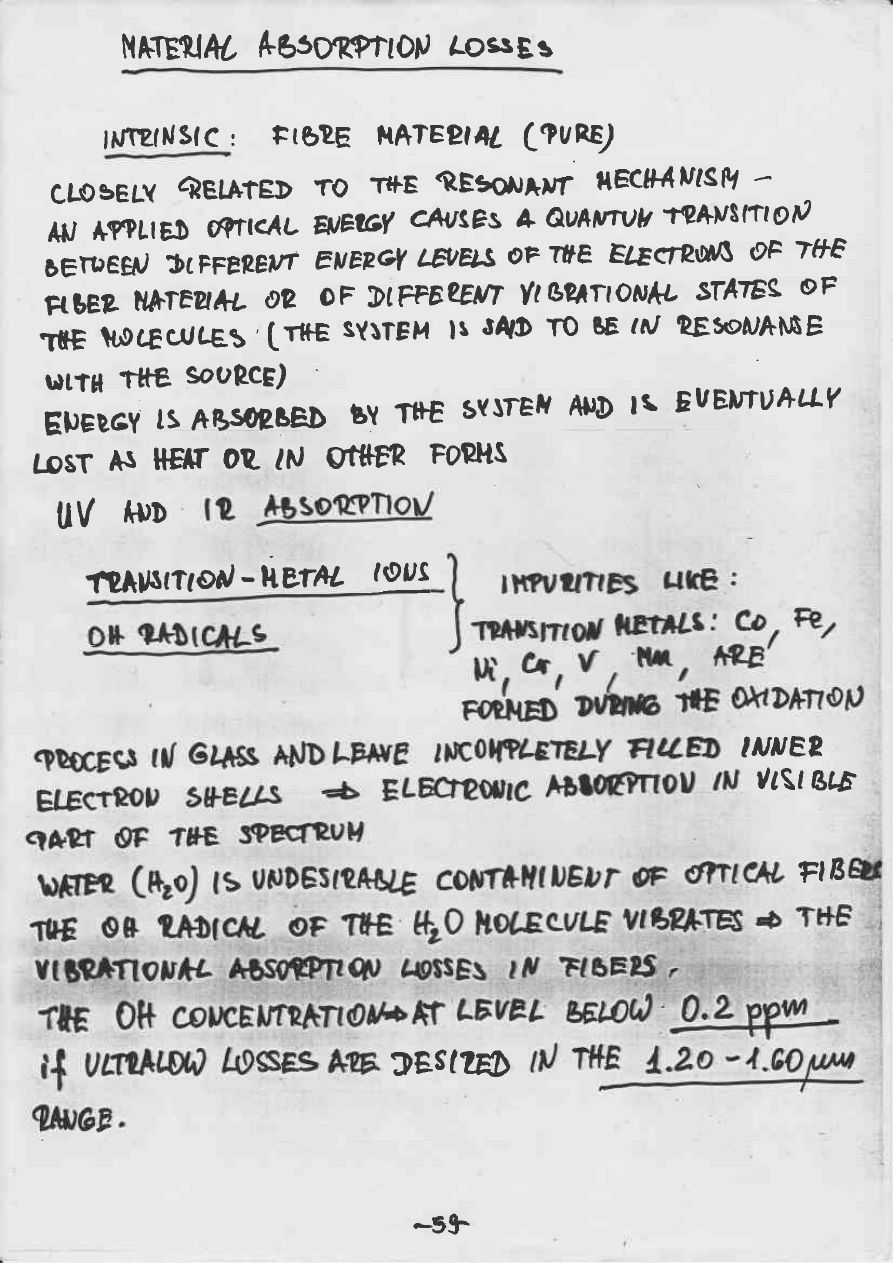 MATERIAL ABSORPTION LOSSES
INTRINSIC: FIBRE MATERIAL (PURE)
CLOSELY RELATED TO THE RESONANT MECHANISM –
AN APPLIED OPTICAL ENERGY CAUSES A QUANTUM TRANSITION
BETWEEN DIFFERENT ENERGY LEVELS OF THE ELECTRONS OF THE
FIBER MATERIAL OR OF DIFFERENT VIBRATIONAL STATES OF
THE MOLECULES (THE SYSTEM IS SAID TO BE IN RESONANSE
WITH THE SOURCE)
ENERGY IS ABSORBED BY THE SYSTEM AND IS EVENTUALLY
LOST AS HEAT OR IN OTHER FORMS
UV AND IR ABSORPTION
TRANSITION-METAL IONS } IMPURITIES LIKE:
OH RADICALS TRANSITION METALS: Co, Fe,
Ni, Cr, V, Mn, ARE
FORMED DURING THE OXIDATION
PROCESS IN GLASS AND LEAVE INCOMPLETELY FILLED INNER
ELECTRON SHELLS ⇒ ELECTRONIC ABSORPTION IN VISIBLE
PART OF THE SPECTRUM
WATER (H₂O) IS UNDESIRABLE CONTAMINENT OF OPTICAL FIBERS
THE OH RADICAL OF THE H₂O MOLECULE VIBRATES ⇒ THE
VIBRATIONAL ABSORPTION LOSSES IN FIBERS.
THE OH CONCENTRATION ⇒ AT LEVEL BELOW 0.2 ppm
if ULTRALOW LOSSES ARE DESIRED IN THE 1.20 - 1.60 μm
RANGE.
-59-